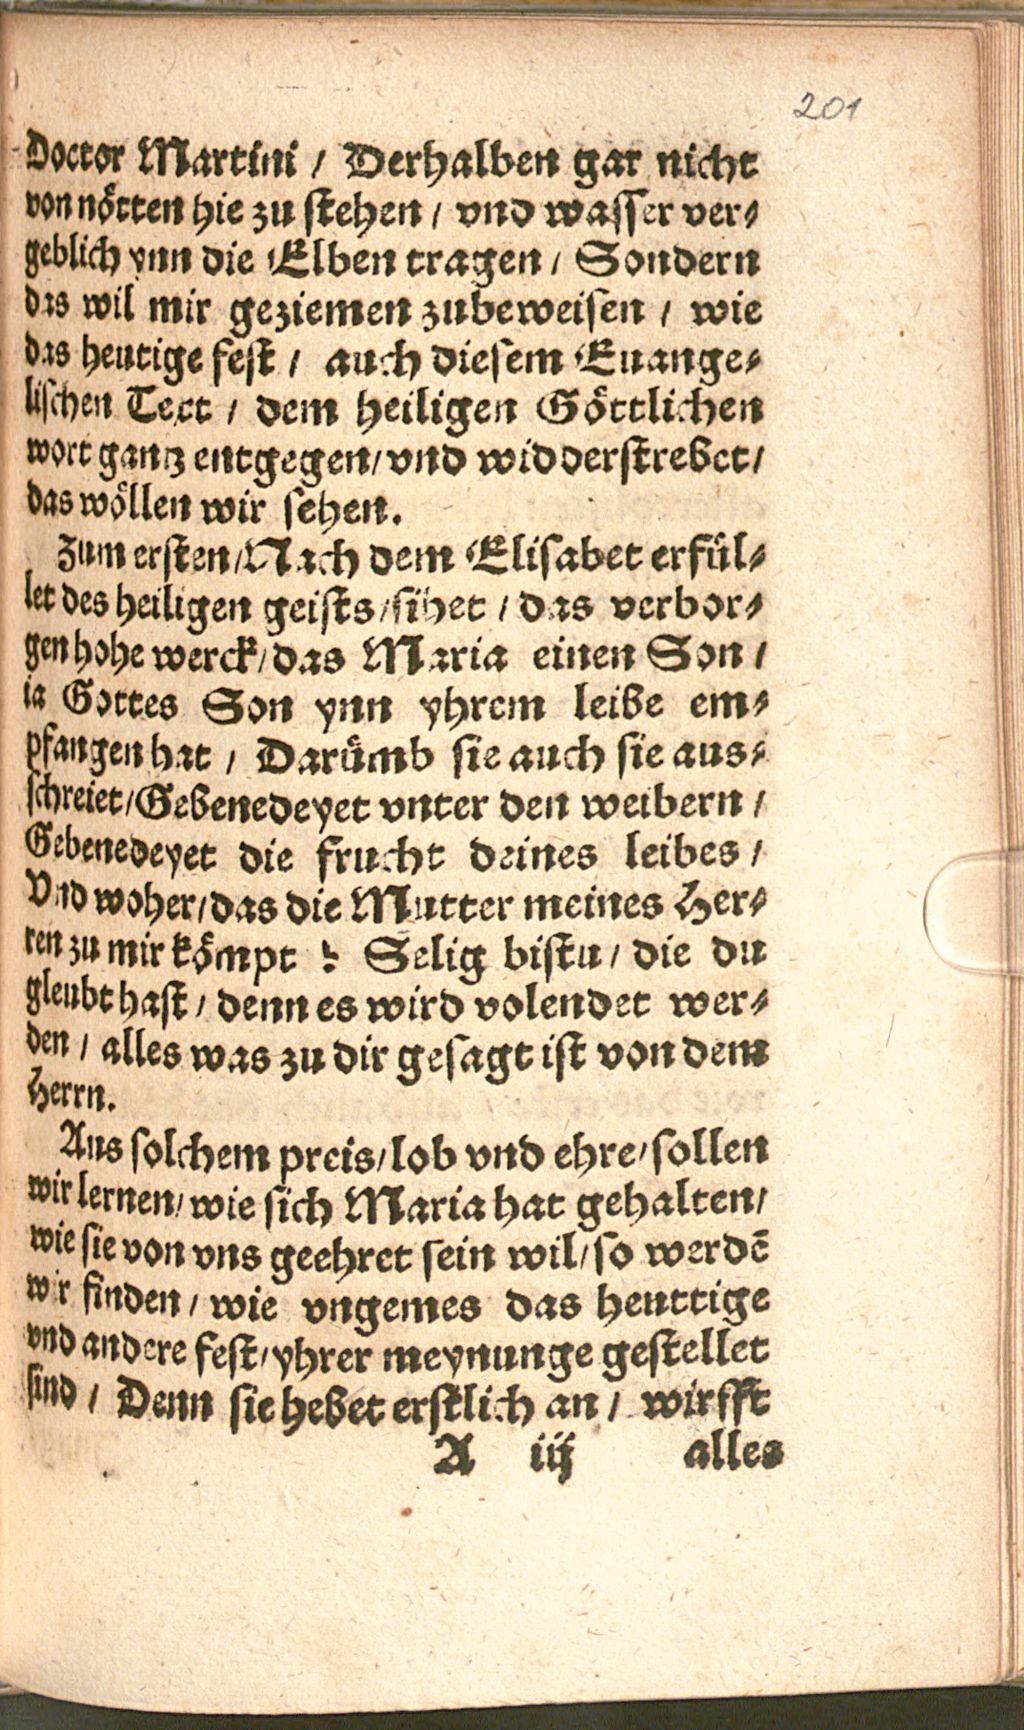 201
Doctor Martini / Derhalben gar nicht
von nötten hie zu stehen / vnd wasser ver⸗
geblich ynn die Elben tragen / Sondern
das wil mir geziemen zubeweisen / wie
das heutige fest / auch diesem Euange⸗
lischen Text / dem heiligen Göttlichen
wort gantz entgegen / vnd widderstrebet /
das wöllen wir sehen.
Zum ersten / Nach dem Elisabet erfül⸗
let des heiligen geists / sihet / das verbor⸗
gen hohe werck / das Maria einen Son /
ia Gottes Son ynn yhrem leibe em⸗
pfangen hat / Darümb sie auch sie aus⸗
schreiet / Gebenedeyet vnter den weibern /
Gebenedeyet die frucht deines leibes /
Vnd woher / das die Mutter meines Her⸗
ren zu mir kömpt ? Selig bistu / die du
gleubt hast / denn es wird volendet wer⸗
den / alles was zu dir gesagt ist von dem
Herrn.
Aus solchem preis / lob vnd ehre / sollen
wir lernen / wie sich Maria hat gehalten /
wie sie von vns geehret sein wil / so werdē
wir finden / wie vngemes das heuttige
vnd andere fest / yhrer meynunge gestellet
sind / Denn sie hebet erstlich an / wirfft
A iij alles